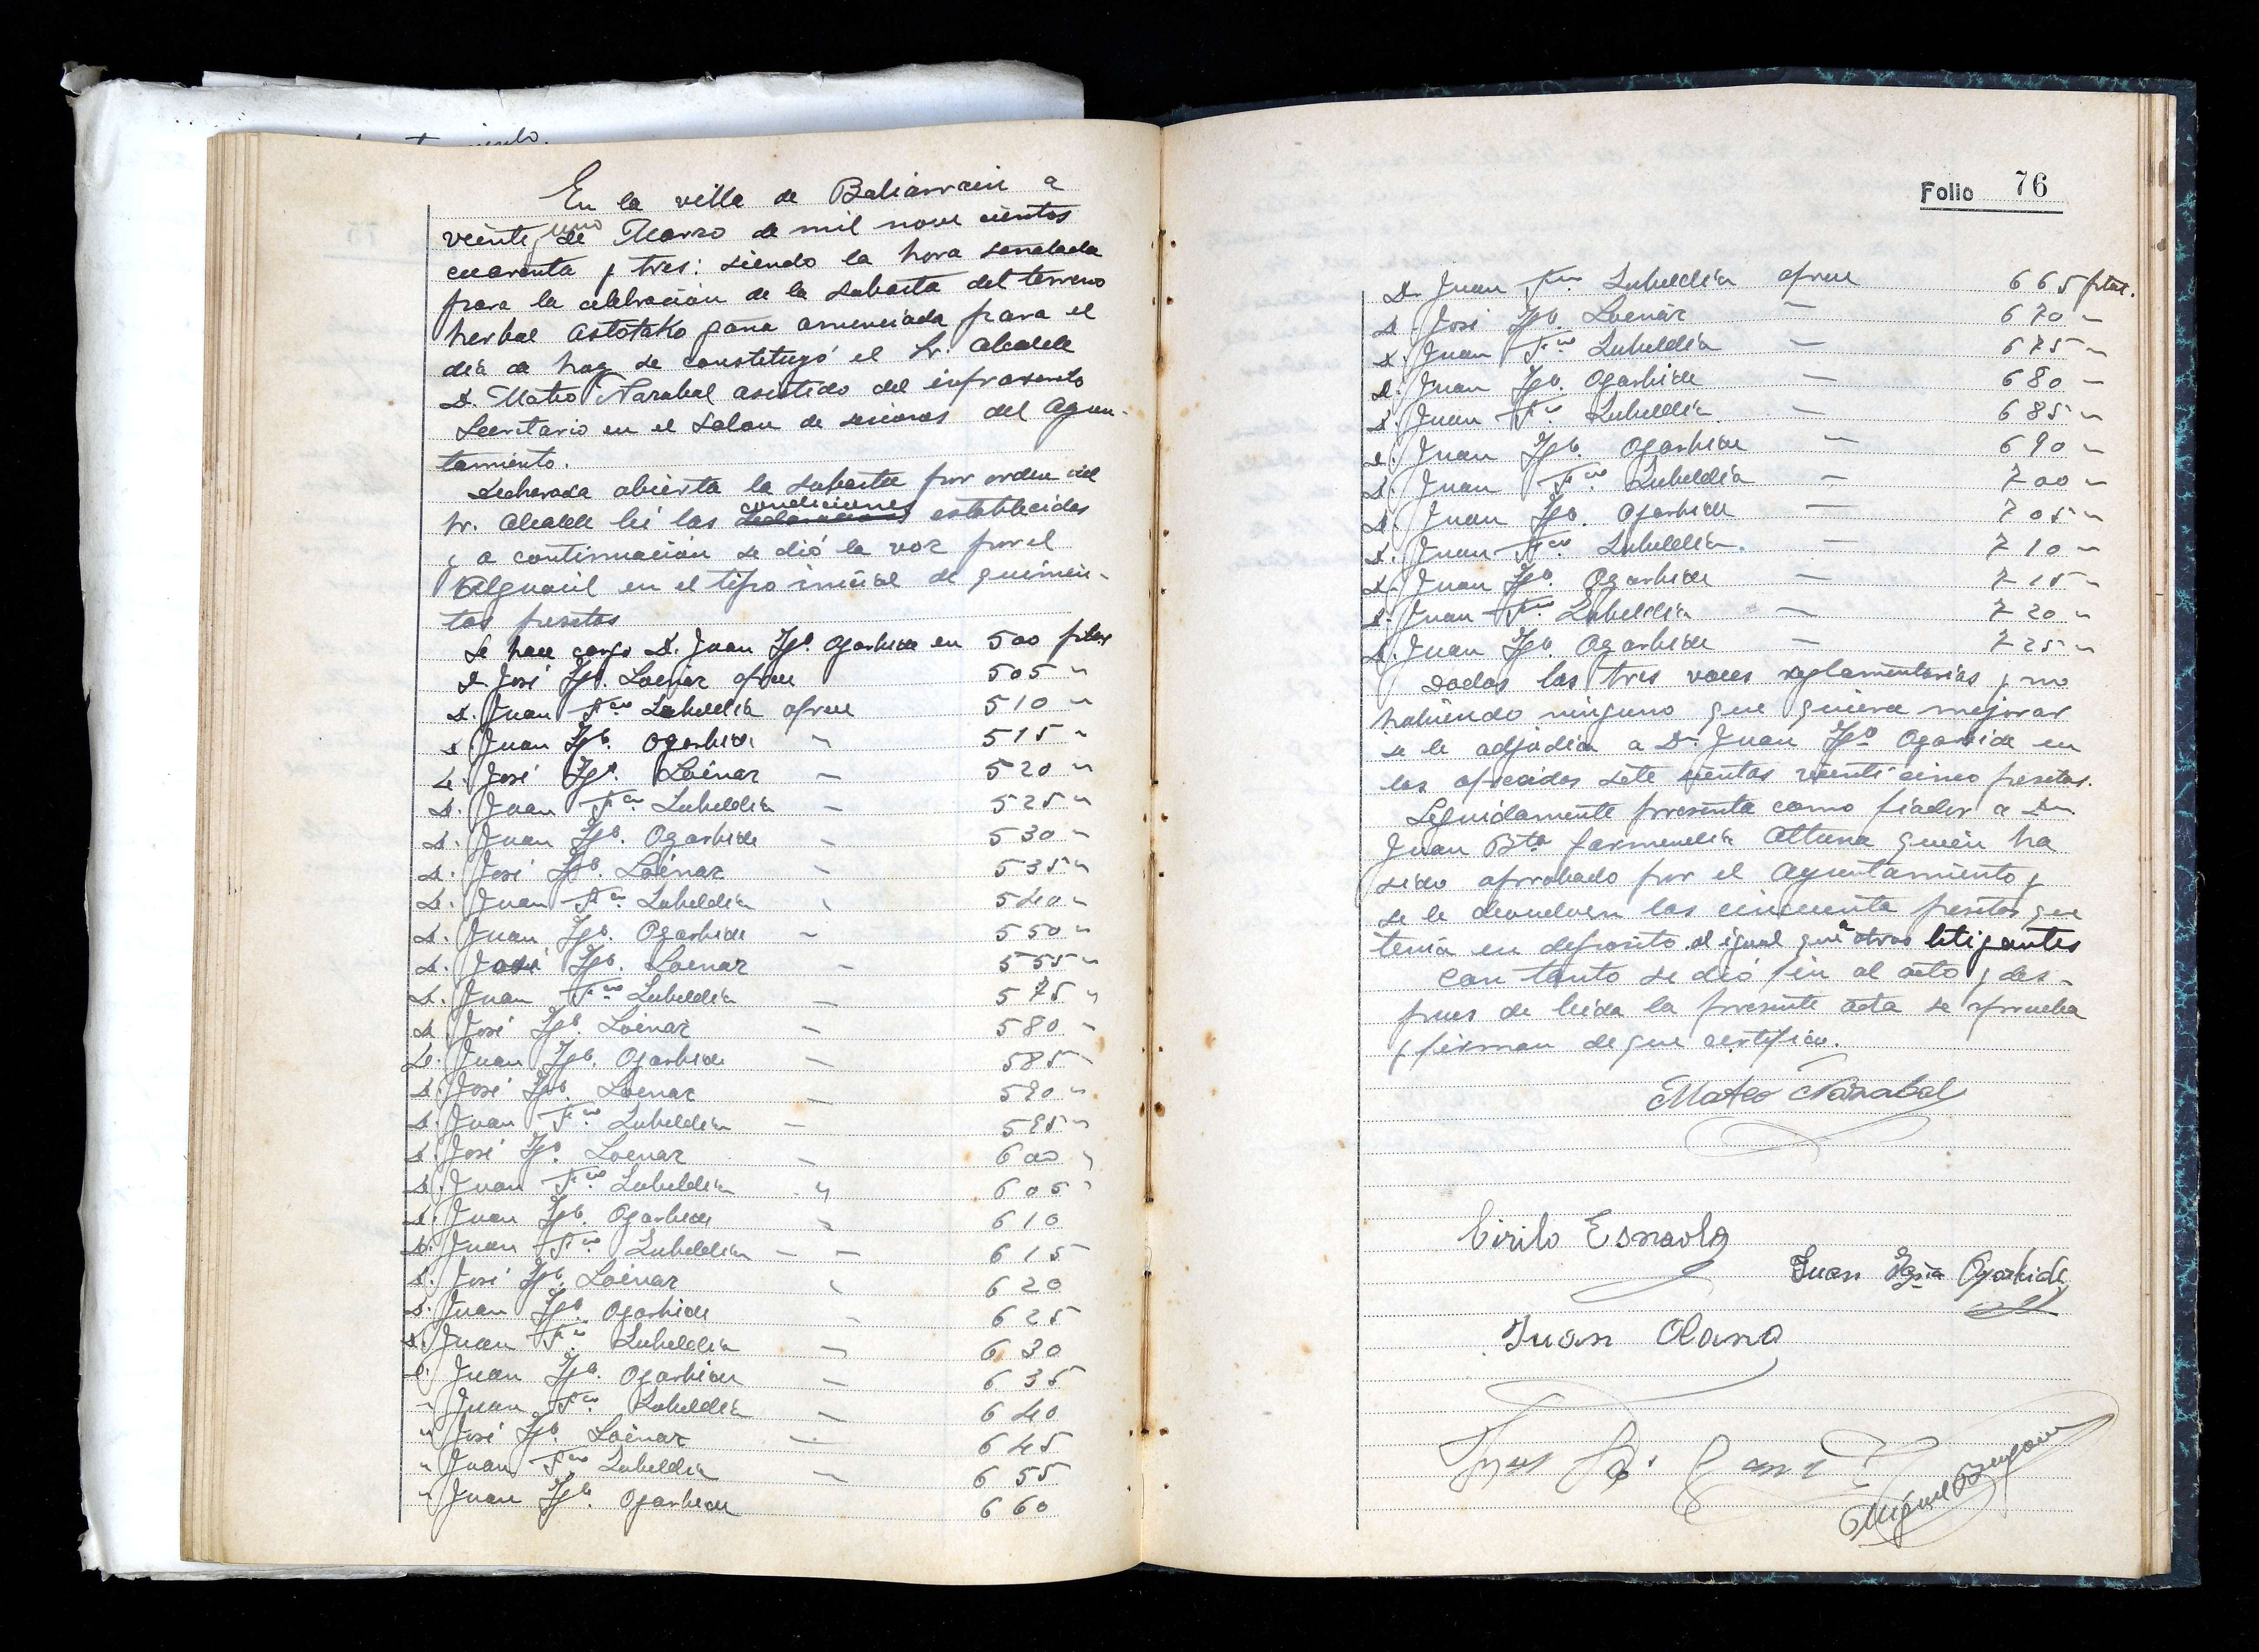 En la villa de Baliarrain a
veinte uno de Marzo de mil nove cientos
cuarenta y tres: siendo la hora señalada
para la celebración de la subasta del terreno
herbal Astotoko gaña anunciada para el
dia de hoy se constituyó el Sr. Alcalde
D. Mateo Narabal asistido del infrascrito
Secretario en el Salon de sesiones del Ayun-
tamiento.
Declarada abierta la subasta por orden del
Sr. Alcalde lei las condiciones establecidas
y a continuación se dió la voz por el
Alguacil en el tipo inicial de quinien-
tas pesetas
Se hace cargo D. Juan Igº Ogarbide en 500 ptas
D. José Igº. Loinaz ofrece 505 "
D. Juan Fco Lubeldia ofrece 510 "
D. Juan Igº. Ogarbide " 515 "
D. José Igº. Loinaz - 520 "
D. Juan Fco Lubeldia - 525 "
D. Juan Igº. Ogarbide - 530 "
D. José Igº. Loinaz - 535 "
D. Juan Fco Lubeldia - 540 "
D. Juan Igº Ogarbide - 550 "
D. José Igº. Loinaz - 555 "
D. Juan Fco Lubeldia - 575 "
D. José Igº. Loinaz - 580 "
D. Juan Igº. Ogarbide - 585 "
D. José Igº. Loinaz - 590 "
D. Juan Fco Lubeldia - 595 "
D. José Igº. Loinaz - 600 "
D. Juan Fco Lubeldia " 605 "
D. Juan Igº. Ogarbide - 610
D. Juan Fco Lubeldia - - 615
D. José Igº. Loinaz - 620
D. Juan Igº Ogarbide - 625
D. Juan Fco Lubeldia - 630
D. Juan Igº. Ogarbide - 635
" Juan Fco Lubeldia - 640
" José Igº. Loinaz - 645
" Juan Fco Lubeldia - 655
" Juan Igº. Ogarbide 660
Folio 76
D. Juan Fco Lubeldia ofrece 665 ptas.
D. José Igº. Loinaz - 670 "
D. Juan Fco Lubeldia - 675 "
D. Juan Igº. Ogarbide - 680 "
D. Juan Fco Lubeldia - 685 "
D. Juan Igº. Ogarbide - 690 "
D. Juan Fco Lubeldia - 700 "
D. Juan Igº. Ogarbide - 705 "
D. Juan Fco Lubeldia. - 710 "
D. Juan Igº. Ogarbide - 715 "
D. Juan Fco Lubeldia - 720 "
D. Juan Igº. Ogarbide - 725 "
Dadas las tres voces reglamentarias y no
habiendo ninguno que quiera mejorar
se le adjudica a Dn. Juan Igº Ogarbide en
las ofrecidas siete cientas veinticinco pesetas.
Seguidamente presenta como fiador a Dn
Juan Bta Garmendia Altuna quien ha
sido aprobado por el Ayuntamiento y
se le devuelven las cincuenta pesetas que
tenia en deposito al igual que a otros litigantes
Con tanto se dió fin al acto y des-
pues de leida la presente acta se aprueba
y firman de que certifico.
Mateo Narabal
Cirilo Esnaola
Juan Ogarbide
Juan Olano
Miguel